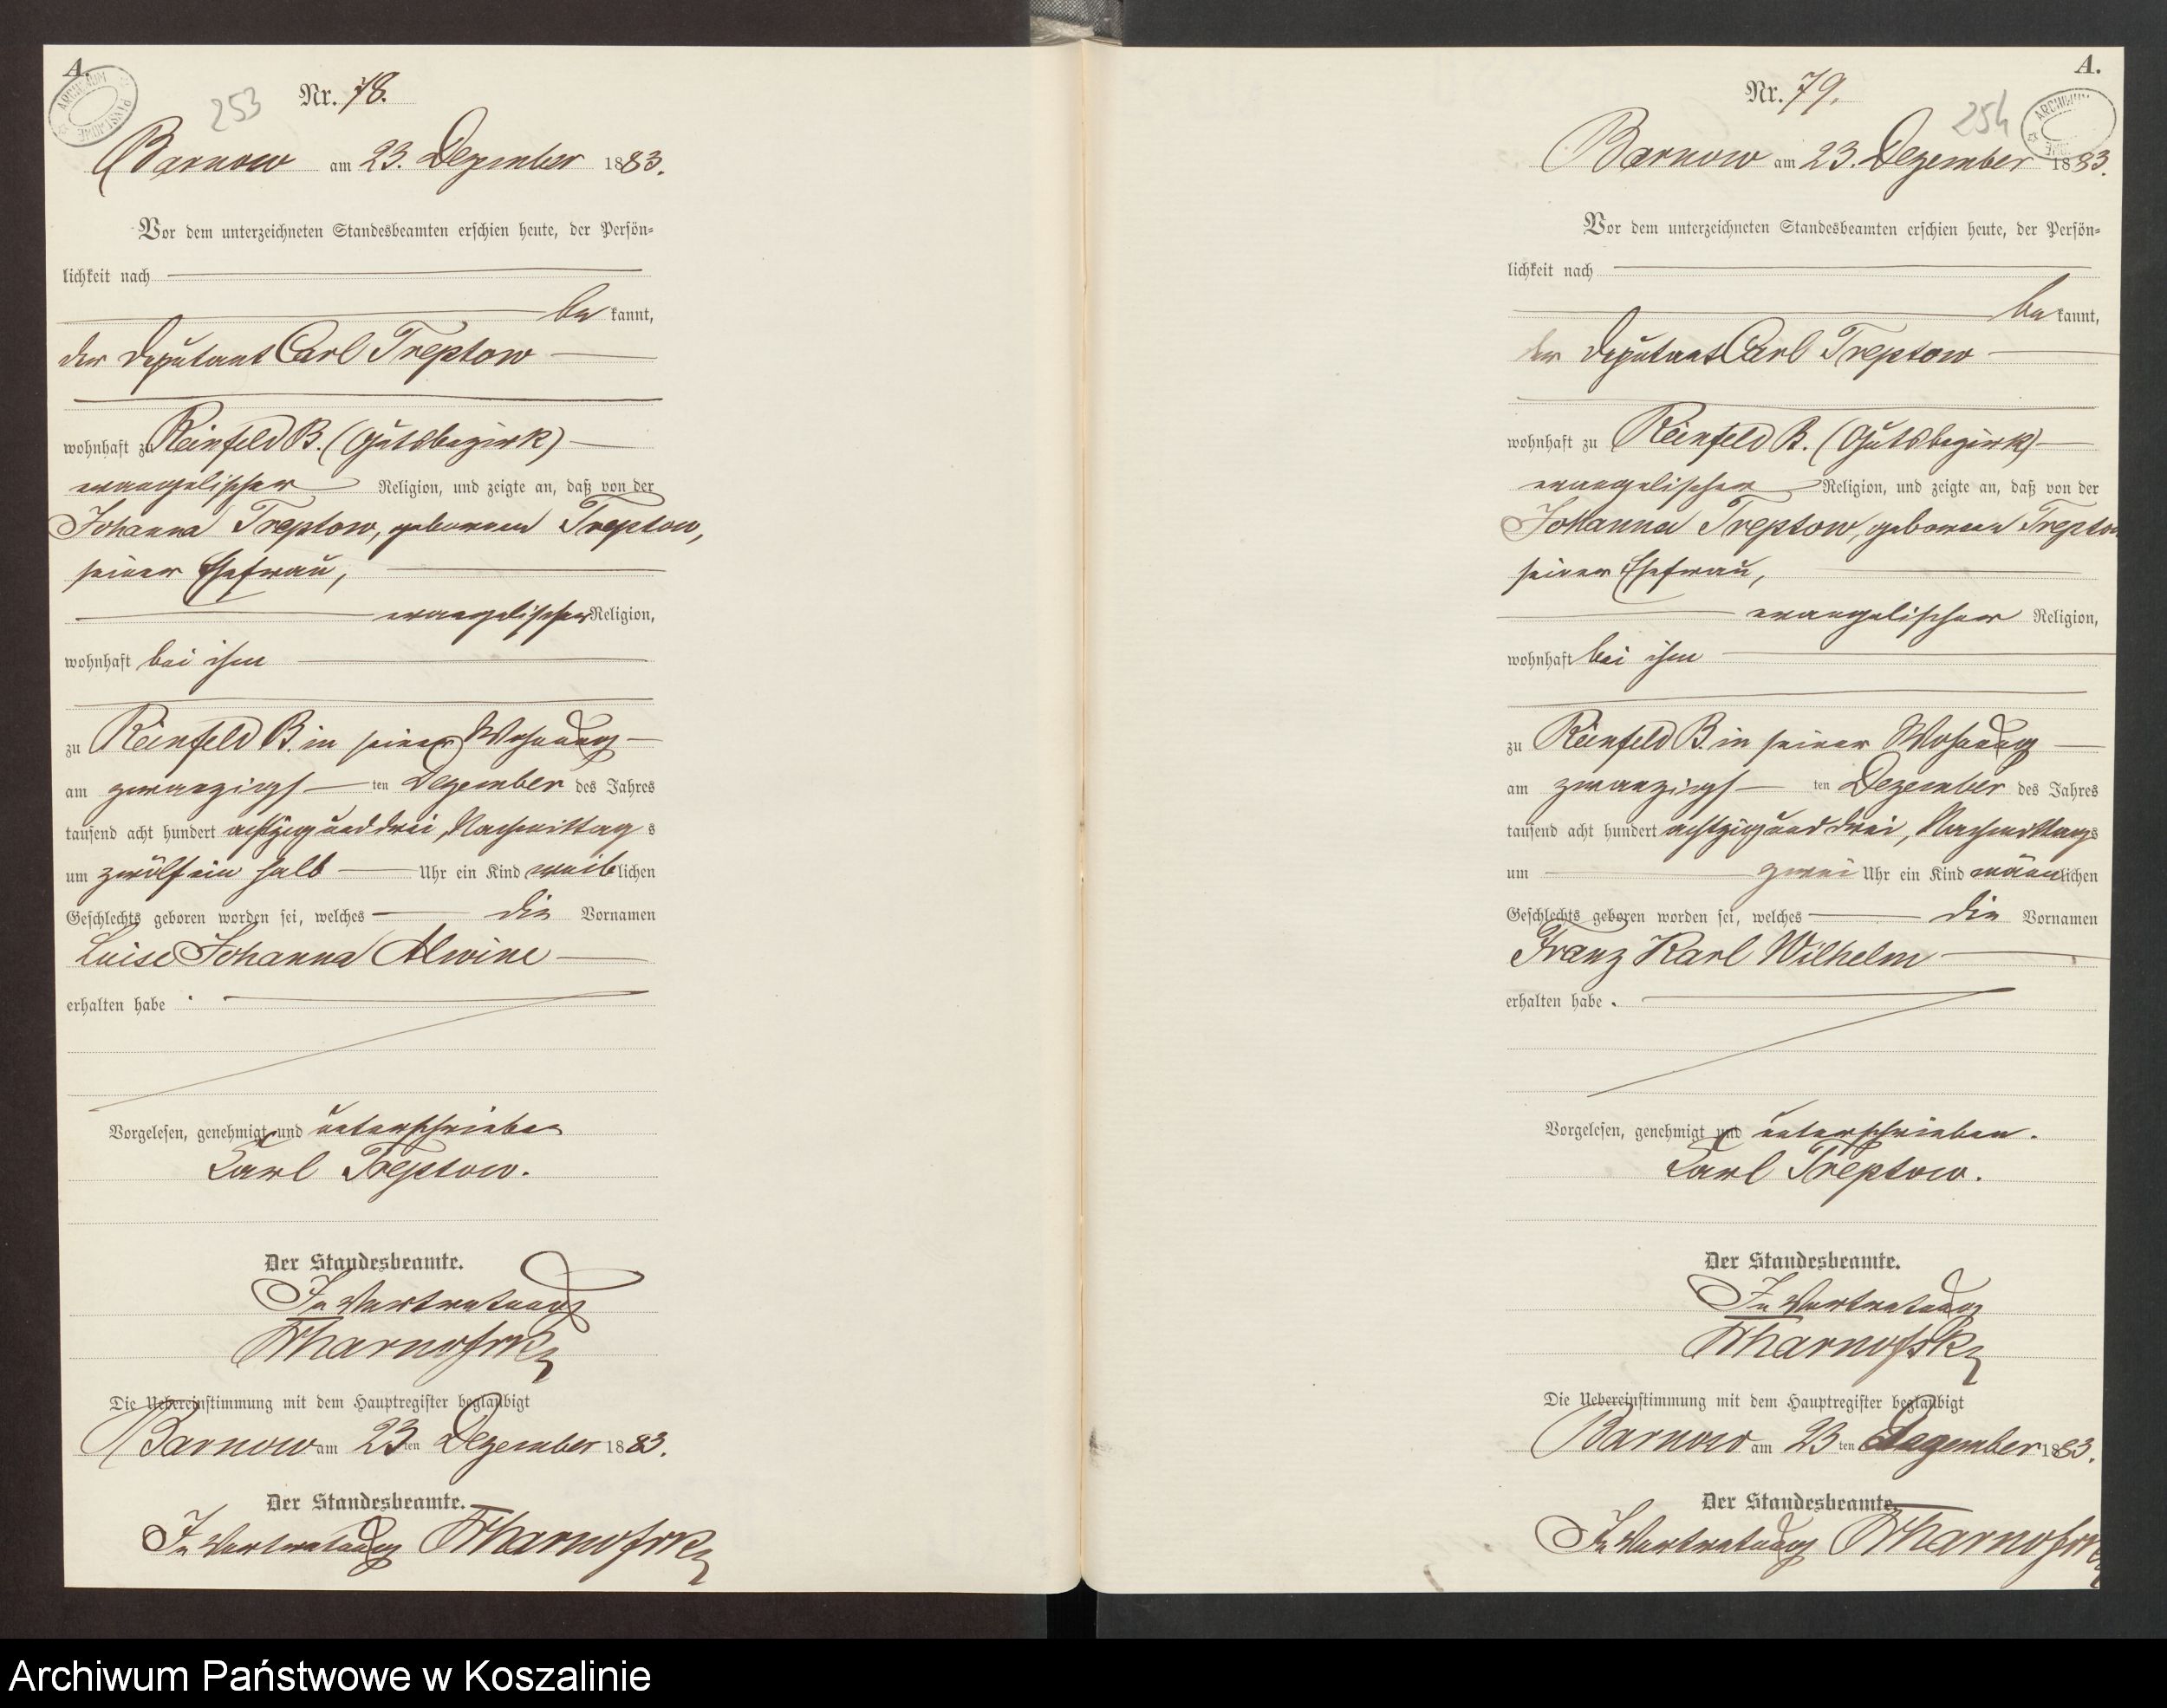 A.
253
Nr. 78.
Barnow am 23. Dezember 1883.
Vor dem unterzeichneten Standesbeamten erschien heute, der Persön-
lichkeit nach
be kannt,
der Deputant Carl Treptow
wohnhaft zu Reinfeld B. (Gutsbezirk)
evangelischer Religion, und zeigte an, daß von der
Johanna Treptow, geborenen Treptow,
seiner Ehefrau,
evangelischer Religion,
wohnhaft bei ihm
zu Reinfeld B. in seiner Wohnung
am zwanzigs ten Dezember des Jahres
tausend acht hundert achtzig und drei, Nachmittag s
um zwölf ein halb Uhr ein Kind weib lichen
Geschlechts geboren worden sei, welches die Vornamen
Luise Johanna Alwine
erhalten habe .
Vorgelesen, genehmigt und unterschrieben
Carl Treptow.
Der Standesbeamte.
In Vertretung
Die Uebereinstimmung mit dem Hauptregister beglaubigt
Barnow am 23 ten Dezember 1883.
Der Standesbeamte.
In Vertretung
A.
254
ARCHIWUM
Nr. 79.
Barnow am 23. Dezember 1883.
Vor dem unterzeichneten Standesbeamten erschien heute, der Persön-
lichkeit nach
be kannt,
der Deputant Carl Treptow
wohnhaft zu Reinfeld B. (Gutsbezirk)
evangelischer Religion, und zeigte an, daß von der
Johanna Treptow, geborenen Treptow
seiner Ehefrau,
evangelischer Religion,
wohnhaft bei ihm
zu Reinfeld B. in seiner Wohnung
am zwanzigs ten Dezember des Jahres
tausend acht hundert achtzig und drei, Nachmittag s
um zwei Uhr ein Kind männ lichen
Geschlechts geboren worden sei, welches die Vornamen
Franz Karl Wilhelm
erhalten habe .
Vorgelesen, genehmigt und unterschrieben.
Carl Treptow.
Der Standesbeamte.
In Vertretung
Die Uebereinstimmung mit dem Hauptregister beglaubigt
Barnow am 23 ten Dezember 1883.
Der Standesbeamte.
In Vertretung
Archiwum Państwowe w Koszalinie